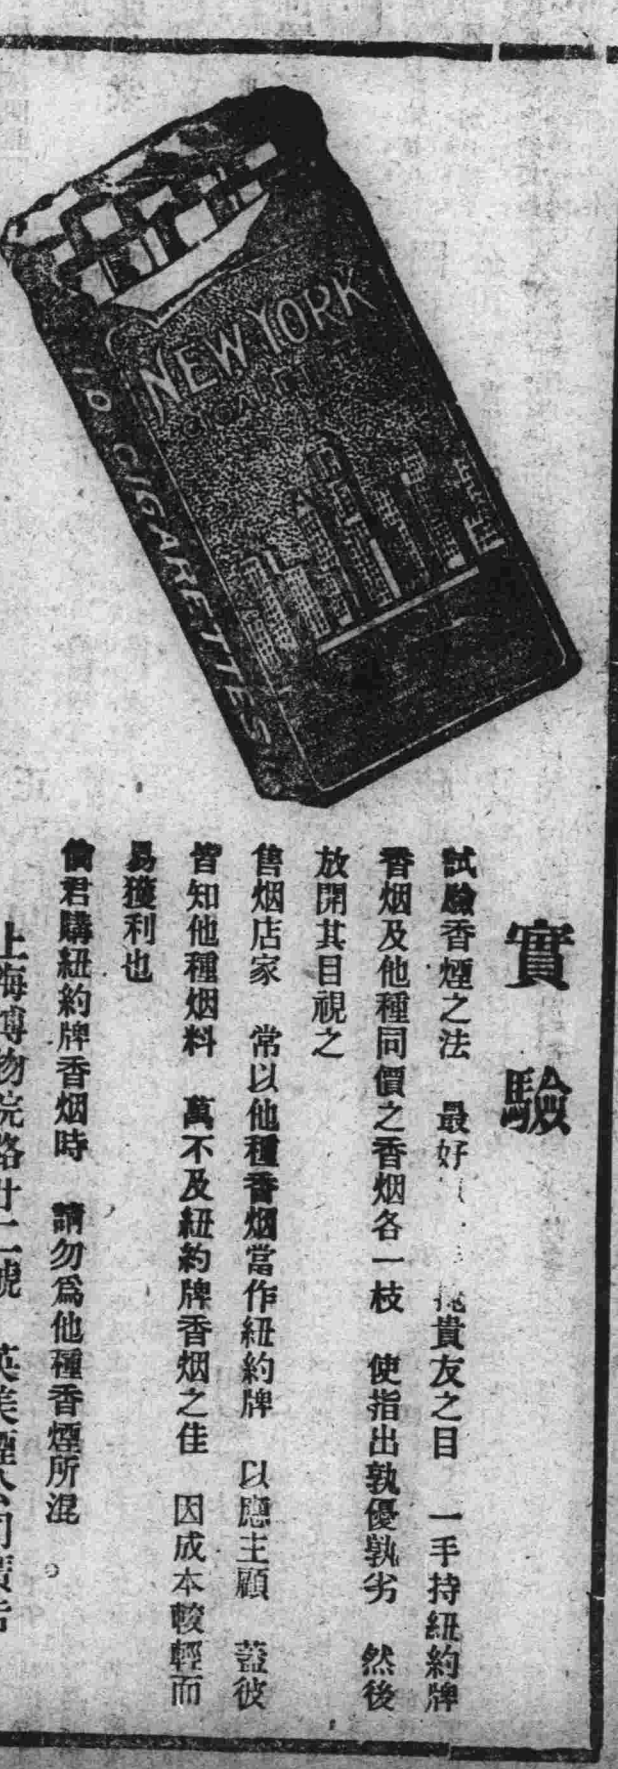 NEW YORK
CIGARETTES
10 CIGARETTES
實驗
試驗香煙之法　最好　掩貴友之目　一手持紐約牌
香烟及他種同價之香烟各一枝　使指出孰優孰劣　然後
放開其目視之
售烟店家　常以他種香烟當作紐約牌　以應主顧　蓋彼
皆知他種烟料　萬不及紐約牌香烟之佳　因成本較輕而
易獲利也
倘君購紐約牌香烟時　請勿爲他種香煙所混。
上海博物院路廿二號　英美煙公司廣告